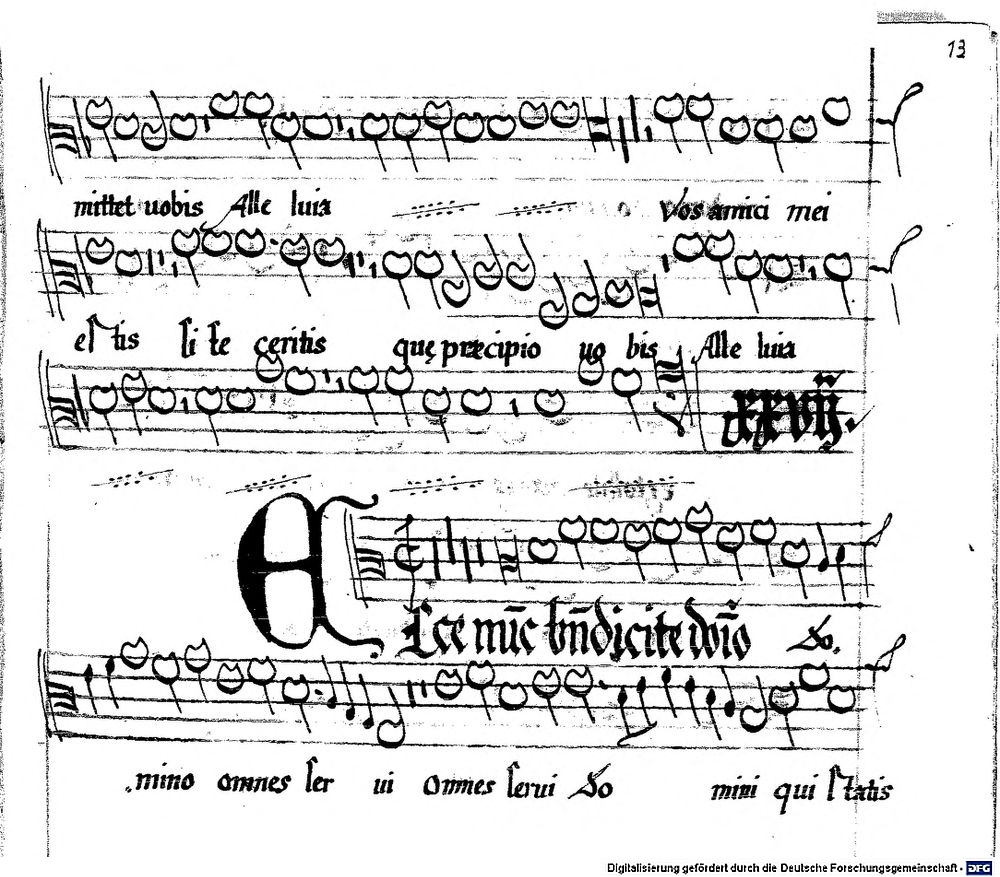 13
mittet uobis Alle luia Vos amici mei
estis si fe ceritis quę præcipio uo bis Alle luia
xxvij.
Ecce nu̅c bn̅dicite do̅io Do.
mino omnes ser ui Omnes serui Do mini qui statis
Digitalisierung gefördert durch die Deutsche Forschungsgemeinschaft - DFG